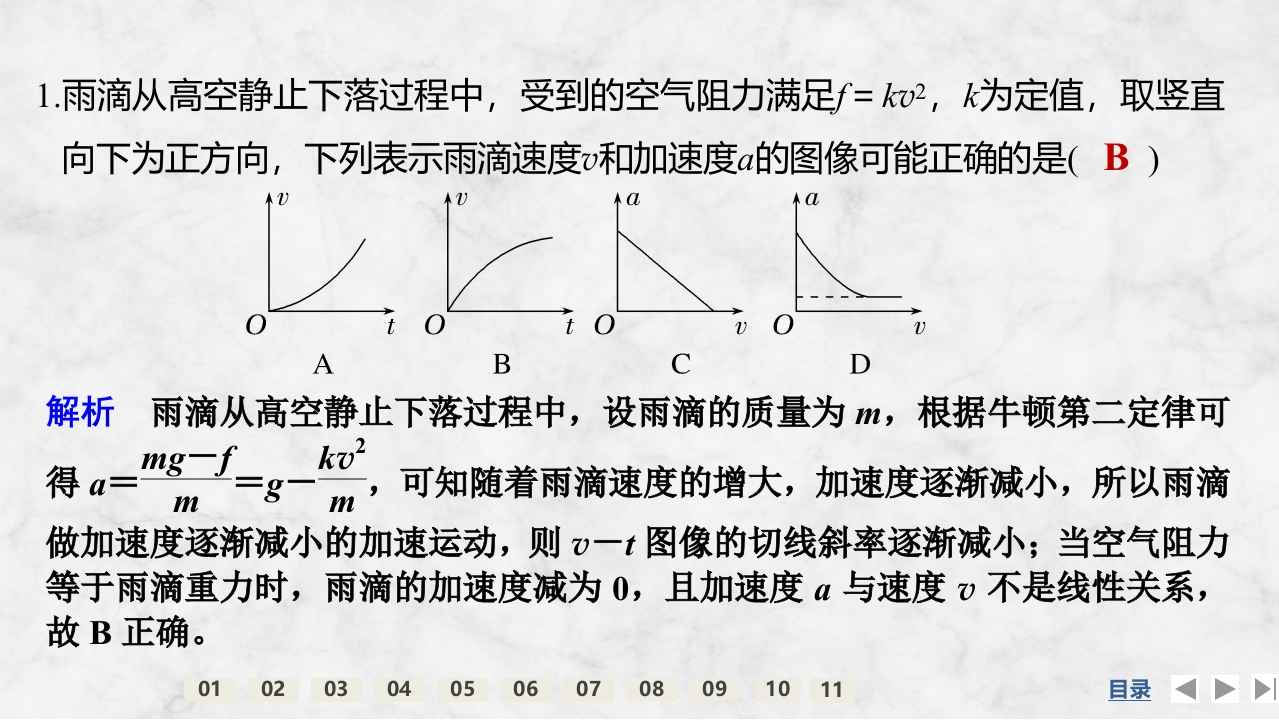 1.雨滴从高空静止下落过程中，受到的空气阻力满足f＝kv²，k为定值，取竖直
向下为正方向，下列表示雨滴速度v和加速度a的图像可能正确的是( B )
v v a a
O t O t O v O v
A B C D
解析 雨滴从高空静止下落过程中，设雨滴的质量为 m，根据牛顿第二定律可
得 a＝(mg－f)/m＝g－kv²/m，可知随着雨滴速度的增大，加速度逐渐减小，所以雨滴
做加速度逐渐减小的加速运动，则 v－t 图像的切线斜率逐渐减小；当空气阻力
等于雨滴重力时，雨滴的加速度减为 0，且加速度 a 与速度 v 不是线性关系，
故 B 正确。
01 02 03 04 05 06 07 08 09 10 11 目录